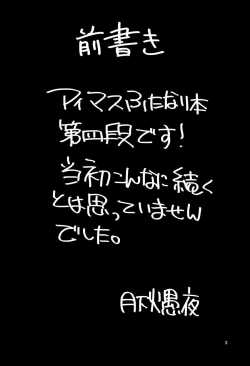 前書き
アイマスふたなり本
第四段です!
当初こんなに続く
とは思っていません
でした。
月下火愚夜